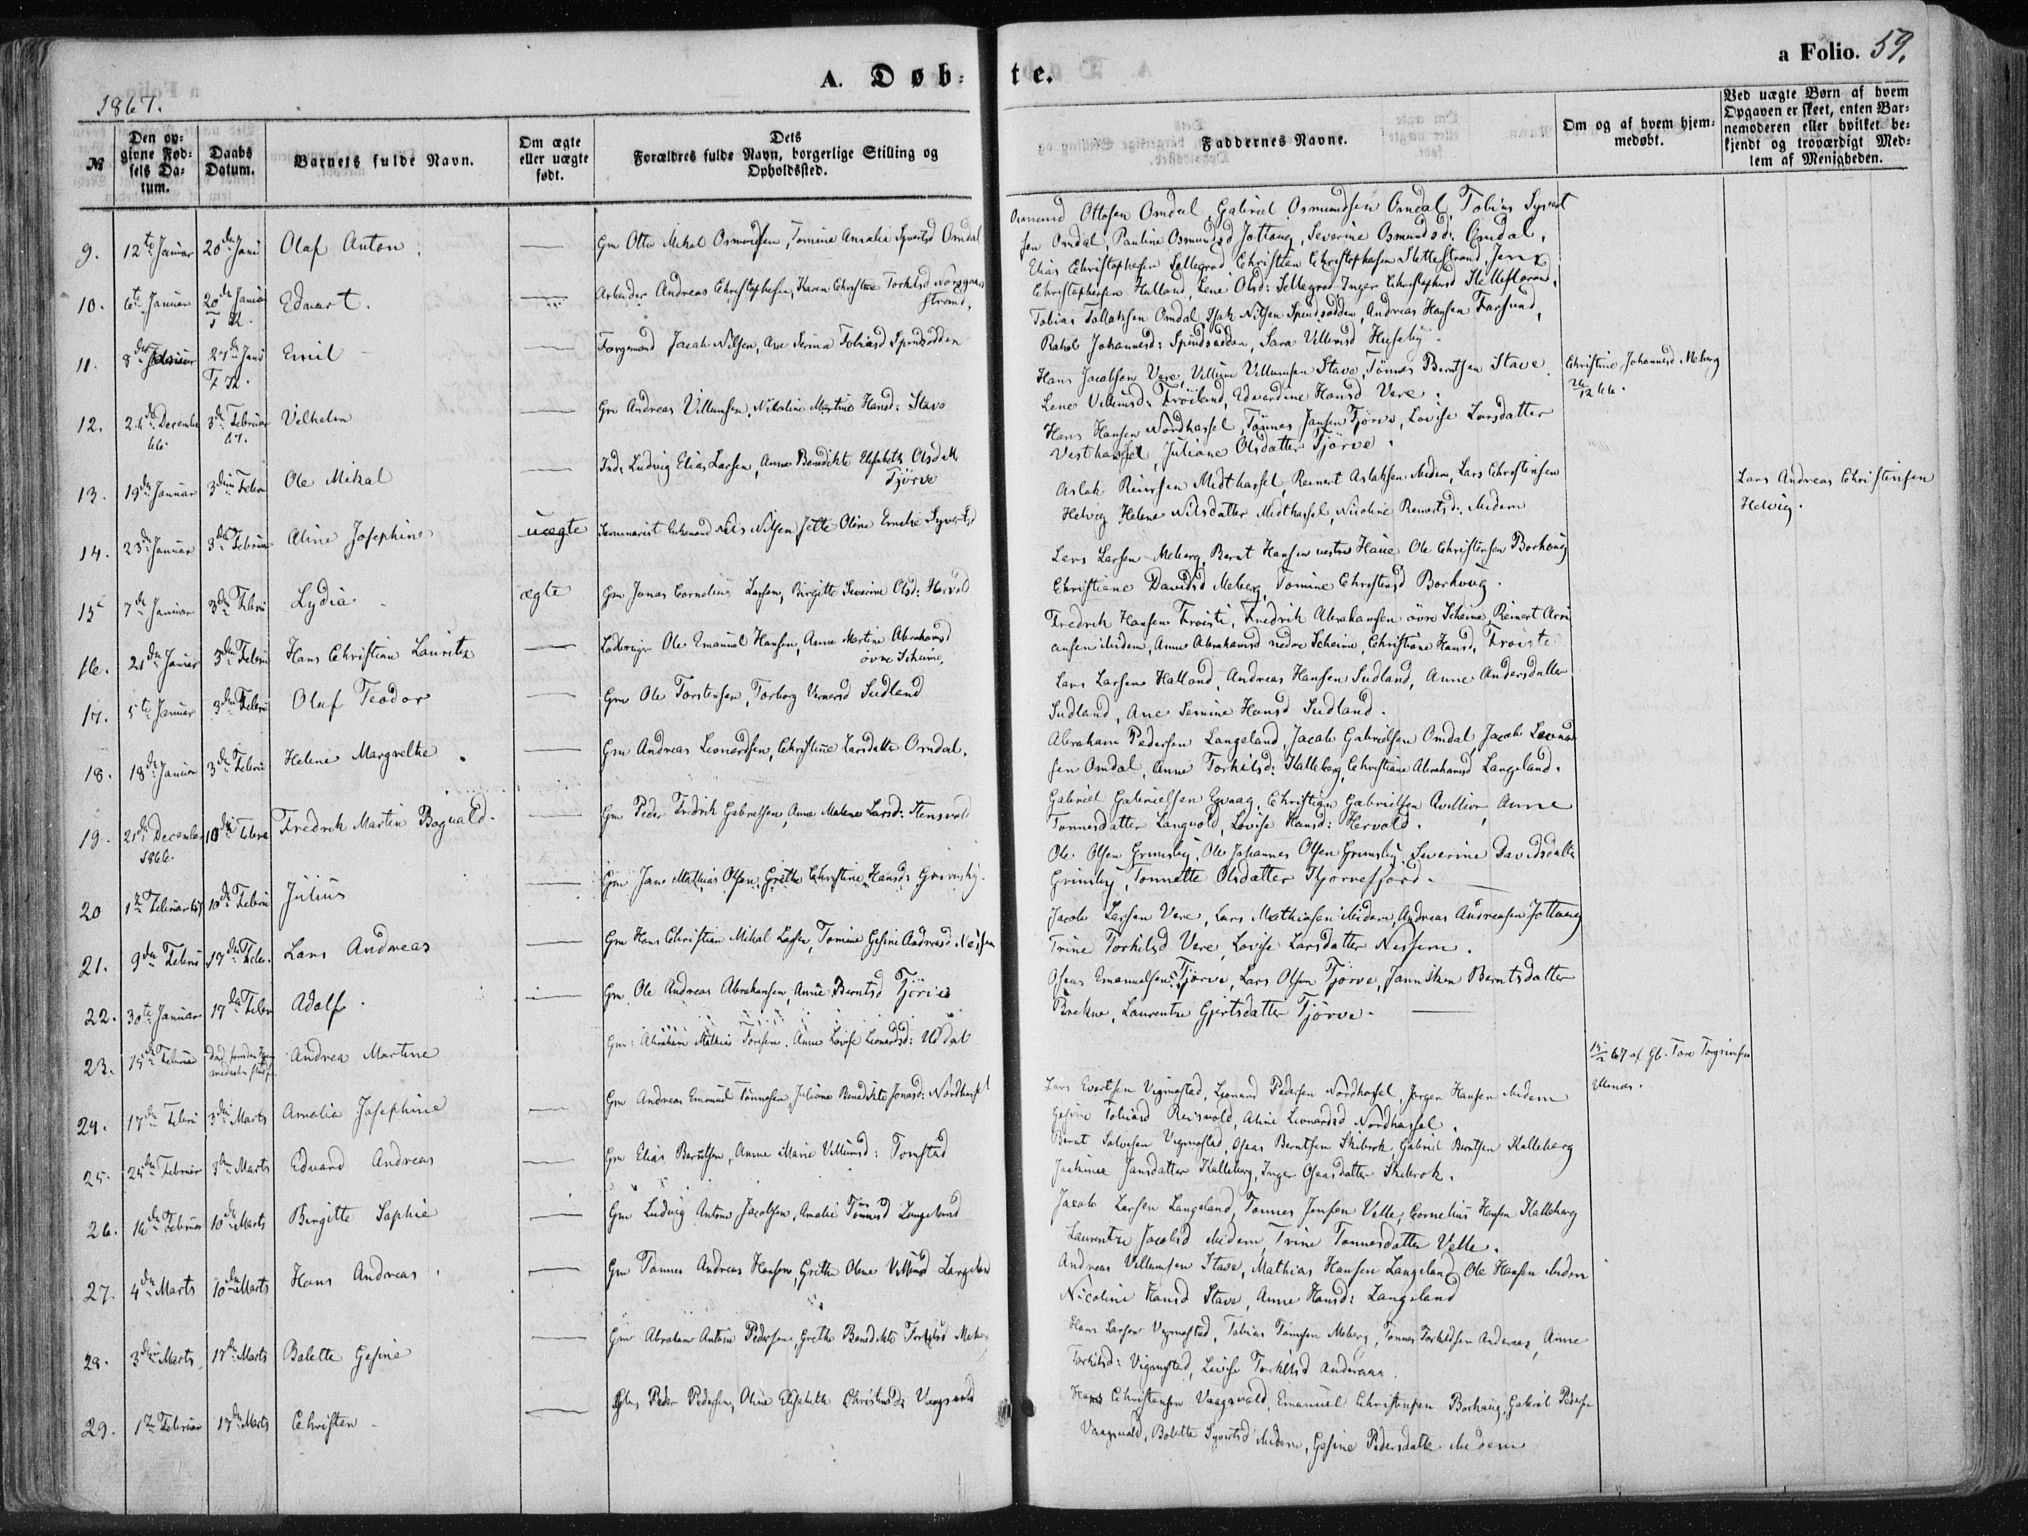 A. Døb-
te.
a Folio. 59.
1867.
№
Den op-
givne Fød-
sels Da-
tum.
Daabs
Datum.
Barnets fulde Navn.
Om ægte
eller uægte
født.
Dets
Forældres fulde Navn, borgerlige Stilling og
Opholdssted.
Faddernes Navne.
Om og af hvem hjem-
medøbt.
Ved uægte Børn af hvem
Opgaven er skeet, enten Bar-
nemoderen eller hvilket be-
kjendt og troværdigt Med-
lem af Menigheden.
9. 12te Januar 20de Janu Olaf Anton — Gm Otto Mikal Osmundsen, Tomine Amalia Syvertsd Omdal
Osmund Ottosen Omdal, Gabriel Osmundsen Omdal, Tobias Syvert
sen Omdal, Pauline Osmundsd Jottoug, Severine Osmundsd: Omdal,
10. 6te Januar 20de Januar Edvart. — Arbeider Andreas Christophersen, Karen Christine Torkilsd
strand,
Elias Christophersen Sellegrod, Christian Christophersen Slettestrand, Jens
Christophersen Halland, Lene Olsd: Sellegrod Inger Christophersd Slettestrand,
11. 8de Januar 27de Janu Emil — Færgemand Jacob Nilsen, Ane Serina Tobiasd Spindsodden
Tobias Tollaksen Omdal, Isak Nilsen Spindsodden, Andreas Hansen Farsund,
Rakel Johannesd: Spindsodden, Sara Villumsd Huseby.
12. 26de December 66. 3de Februar 67. Vilhelm — Gm Andreas Villumsen, Nikoline Martine Hansd: Stave
Hans Jacobsen Vere, Villum Villumsen Stave, Tønnes Berntsen Stave
Lene Villumsd: Frøiland, Edvardine Hansd Vere.
Christine Johannesd Meberg
26/12 66.
13. 19de Januar 3die Febru Ole Mikal — Inds Ludvig Elias Larsen, Anne Benedikte Elisabeth Olsdatt
Tjørve
Hans Hansen Nordhassel, Tønnes Jansen Tjørve, Lovise Larsdatter
Vesthassel, Juliane Olsdatter Tjørve.
14. 23de Januar 3die Februar Aline Josephine uægte Seminarist Enkemand Nils Nilsen Jette Oline Emelie Syvertsd
Aslak Reiersen Midthassel, Reinert Aslaksen Midem, Lars Christensen
Helvig Helene Nilsdatter Midthassel, Nicoline Reinertsd: Midem
Lars Andreas Christensen
Helvig.
15 7de Januar 3die Febru Lydia ægte Gm Jonas Cornelius Larsen, Birgitte Severine Olsd: Hervold
Lars Larsen Meberg, Bernt Hansen vestre Haue Ole Christensen Borhoug
Christiane Davidsd Meberg, Tomine Christensd Borhoug.
16. 21de Januar 3die Febru Hans Christian Lauritz — Ole Emanuel Hansen, Anne Martine Abrahamsd
øvre Scheime,
Fredrik Hansen Frøiste, Fredrik Abrahamsen øvre Scheime, Reinert Arn
ansen Midem, Anne Abrahamsd nedre Scheime, Christiane Hansd, Frøiste
17. 5te Januar 3die Febru Oluf Teodor — Gm Ole Torstensen, Torborg Sudland
Lars Larsen Halland, Andreas Hansen Sudland, Anne Andersdatter
Sudland, Ane Semine Hansd Sudland.
18. 18de Januar 3die Febru Helene Margrethe — Gm Andreas Leonardsen, Christine Larsdatter Omdal.
Abraham Pedersen Langeland, Jacob Gabrielsen Omdal Jacob Leonar
sen Omdal, Anne Torkilsd: Kalleberg, Christiane Abrahamsd Langeland.
19. 21de December 1866. 10de Febru Fredrik Martin Boguald. — Gm Peder Fredrik Gabrielsen, Anne Malene Larsd:
Gabriel Gabrielsen Egvaag, Christian Gabrielsen, Anne
Tonnesdatter Langvold, Lovise Hansd: Hervold.
20 1ste Februar 67 10de Febru Julius — Gm Jan Mathias Olsen, Grethe Christine Hansd: Grimsby.
Ole Olsen Grimsby, Ole Johannes Olsen Grimsby, Severine Davidsdatter
Grimsby, Tonnette Olsdatter Tjorvefjord. —
21. 9de Febru 17de Febr. Lars Andreas — Gm Hans Christian Mikal Larsen, Tomine Gesine Andreasd
Jacob Larsen Vere, Lars Mathiasen Midem, Andreas Andreasen Jottoug
Trine Torkilsd Vere, Lovise Larsdatter Nesseim.
22. 30te Januar 17de Febr Adolf — Gm Ole Andreas Abrahamsen, Anne Berntsd Tjørve
Oseas Emanuelsen Tjørve, Lars Olsen Tjørve, Janniken Berntsdatter
Brekne, Laurentze Gjertsdatter Tjørve. —
23. 15de Februar Andrea Martine Gm: Abraham Mathias Toresen, Anne Lovise Leonardsd: Uldal
15/2 67 af Gb. Tore Torgrimsen
24. 17de Febru 3die Marts Amalia Josephine — Gm Andreas Emanuel Tønnesen, Juliane Benedikte Jonasd: Nordhassel
Lars Evertsen Vigmostad, Leonard Pedersen Nordhassel, Jørgen Hansen Midem
Gesine Tobiasd Reisvold, Aline Leonardsd Nordhassel.
25. 25de Februar 3die Marts Edvard Andreas — Gm Elias Berntsen, Anne Marie Villumsd: Tomstad
Bernt Salvesen Vigmostad, Oseas Berntsen Skibrok, Gabriel Berntsen Kalleberg
Jansdatter Kalleberg, Inger Oseasdatter Skibrok.
26. 16de Februar 10de Marts Birgitte Sophie — Gm Ludvig Anton Jacobsen, Amalie Tønnesd Langeland
Jacob Larsen Langeland, Tonnes Jensen Velle, Cornelius Hansen Kalleberg
Laurentze Jacobsd Midem, Trine Tonnesdatter Velle.
27. 4de Marts 10de Marts Hans Andreas. — Gm Tønnes Andreas Hansen, Grethe Olene Villumsd Langeland
Andreas Villumsen Stave, Mathias Hansen Langeland, Ole Hansen Midem
Nicoline Hansd Stave, Anne Hansd: Langeland
28. 3die Marts 17de Marts Bolette Gesine — Gm Abraham Antoni Pedersen, Grethe Benedikte Torkilsd
Hans Larsen Vigmostad, Tobias Tønnesen Meberg, Tønnes Torkildsen Anderaas, Anne
Torkilsd: Vigmostad, Lovise Torkilsd Anderaas.
29. 1ste Februar 17de Marts Christen — Peder Pedersen, Oline Elisabeth Christensd: Vaagsvold
Hans Christensen Vaagsvold, Emanuel Christensen Borhaug, Gabriel Peders
Vaagsvold, Bolette Syvertsd Midem, Gesine Pedersdatter Midem